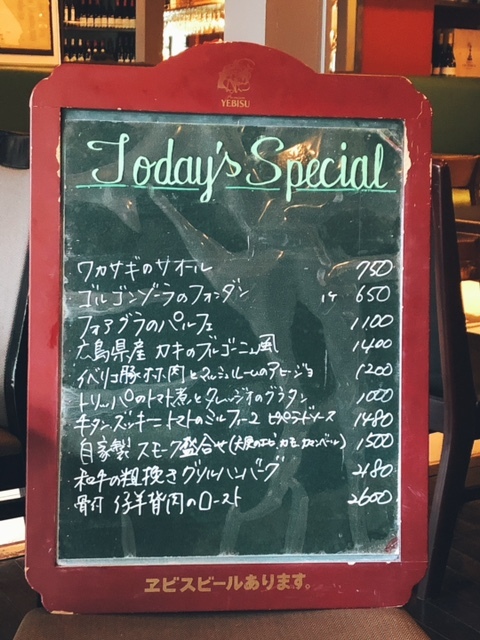 YEBISU
Today's Special
ワカサギのサオール 750
ゴルゴンゾーラのフォンダン 1ケ 650
フォアグラのパルフェ 1100
広島県産 カキのブルゴーニュ風 1400
イベリコ豚ホホ肉とマッシュルームのアヒージョ 1200
トリッパのトマト煮とタレッジオのグラタン 1000
チキン ズッキーニ トマトのミルフィーユ ピペラードソース 1480
自家製 スモーク盛合せ 1500
和牛の粗挽きグリルハンバーグ 2180
骨付 仔羊背肉のロースト 2600
ヱビスビールあります。